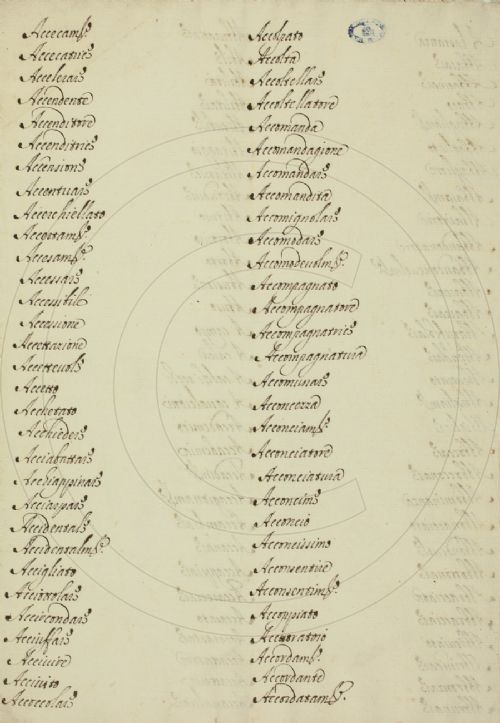 Accecamᵗᵒ.
Accecatrice
Accelerare
Accendente
Accenditore
Accenditrice
Accensione
Accentuare
Accerchiellato
Accertamᵗᵉ.
Accesamᵗᵉ.
Accessare
Accessibile
Accessione
Accettazione
Accettevole
Accetto
Acchetato
Acchiedere
Acciabattare
Acchiappinare
Acciarpare
Accidentale
Accidentalmᵗᵉ.
Accigliato
Acciottolare
Accircondare
Acciuffare
Accivire
Accivito
Accoccolare
Accolpato
Accolta
Accoltellare
Accoltellatore
Accomanda
Accomandagione
Accomandare
Accomandita
Accomignolare
Accomodare
Accomodevolmᵗᵉ.
Accompagnato
Accompagnatore
Accompagnatrice
Accompagnatura
Accomunare
Acconcezza
Acconciamᵗᵉ.
Acconciatore
Acconciatura
Acconcime
Acconcio
Acconcissimo
Acconsentire
Acconsentimᵗᵒ.
Accoppiato
Accoratorio
Accordamᵗᵒ.
Accordante
Accordatamᵗᵉ.